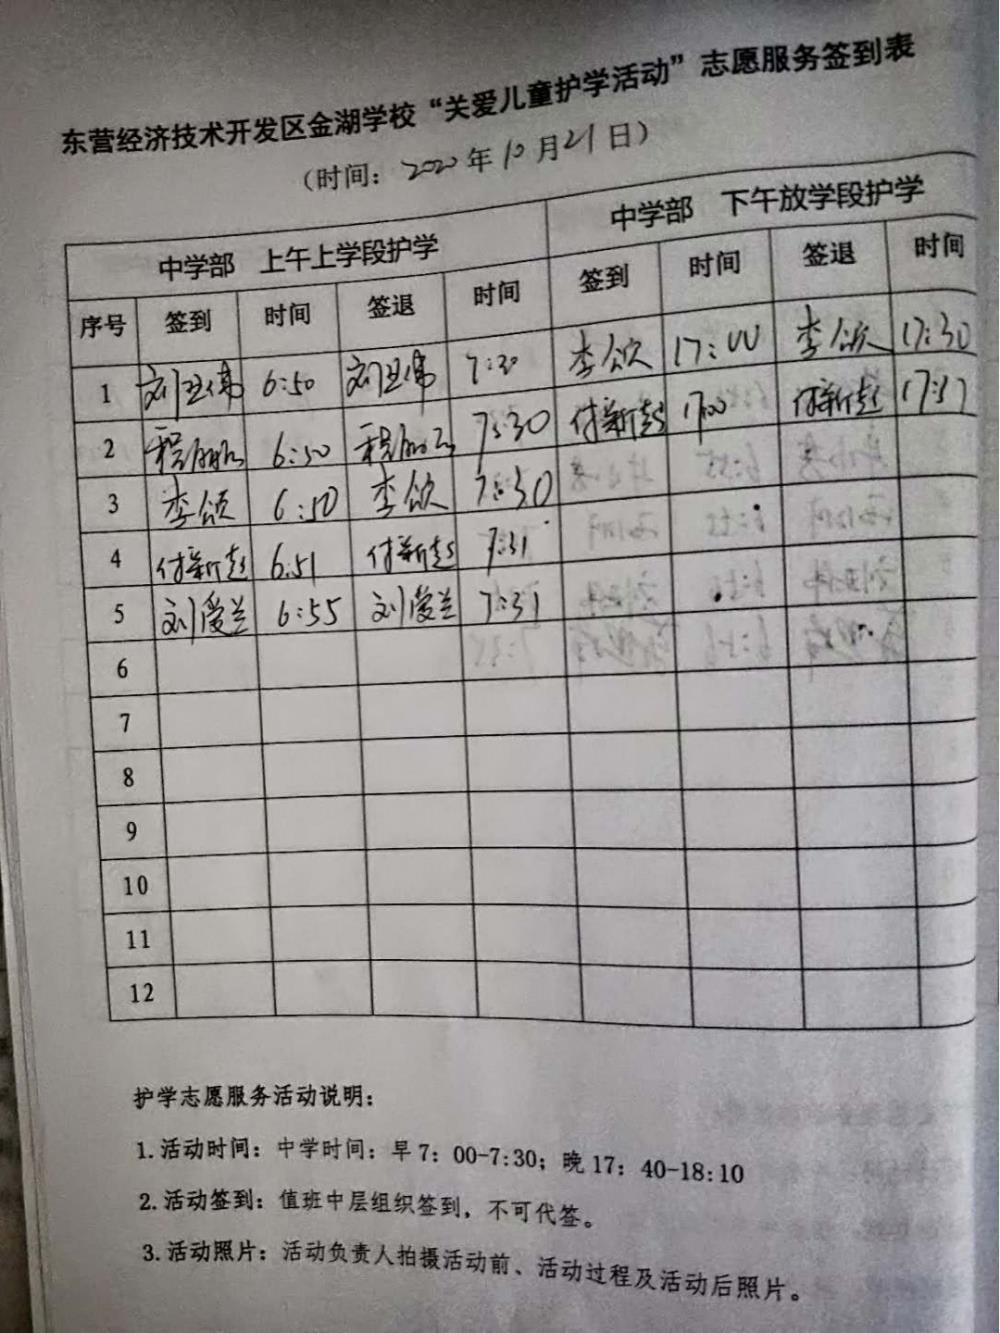 东营经济技术开发区金湖学校“关爱儿童护学活动”志愿服务签到表
（时间：2020年10月21日）
中学部 上午上学段护学 中学部 下午放学段护学
序号 签到 时间 签退 时间 签到 时间 签退 时间
1 刘卫伟 6:50 刘卫伟 7:30 李欣 17:00 李欣 17:30
2 程 6:50 程 7:30 付新超 17:00 付新超 17:
3 李欣 6:50 李欣 7:30
4 付新超 6:51 付新超 7:31
5 刘爱兰 6:55 刘爱兰 7:31
6
7
8
9
10
11
12
护学志愿服务活动说明：
1.活动时间：中学时间：早7：00-7:30；晚17：40-18:10
2.活动签到：值班中层组织签到，不可代签。
3.活动照片：活动负责人拍摄活动前、活动过程及活动后照片。